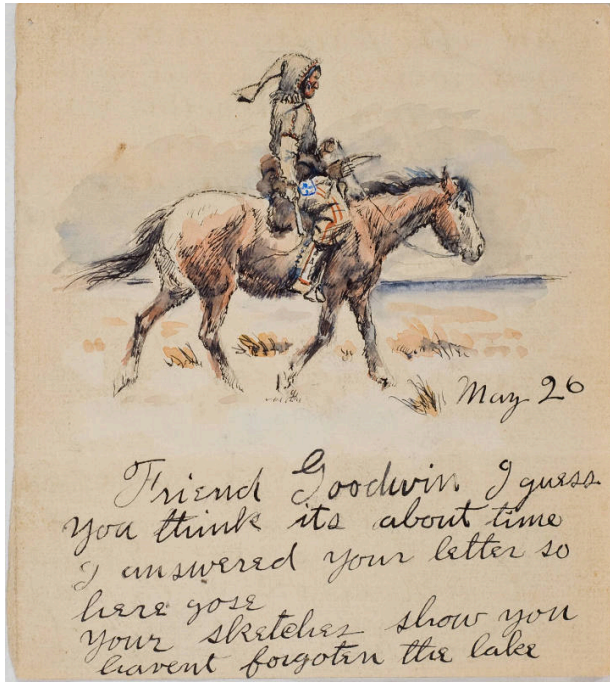 May 26
Friend Goodwin I guess
you think its about time
I answered your letter so
here gose
your sketches show you
havent forgoten the lake